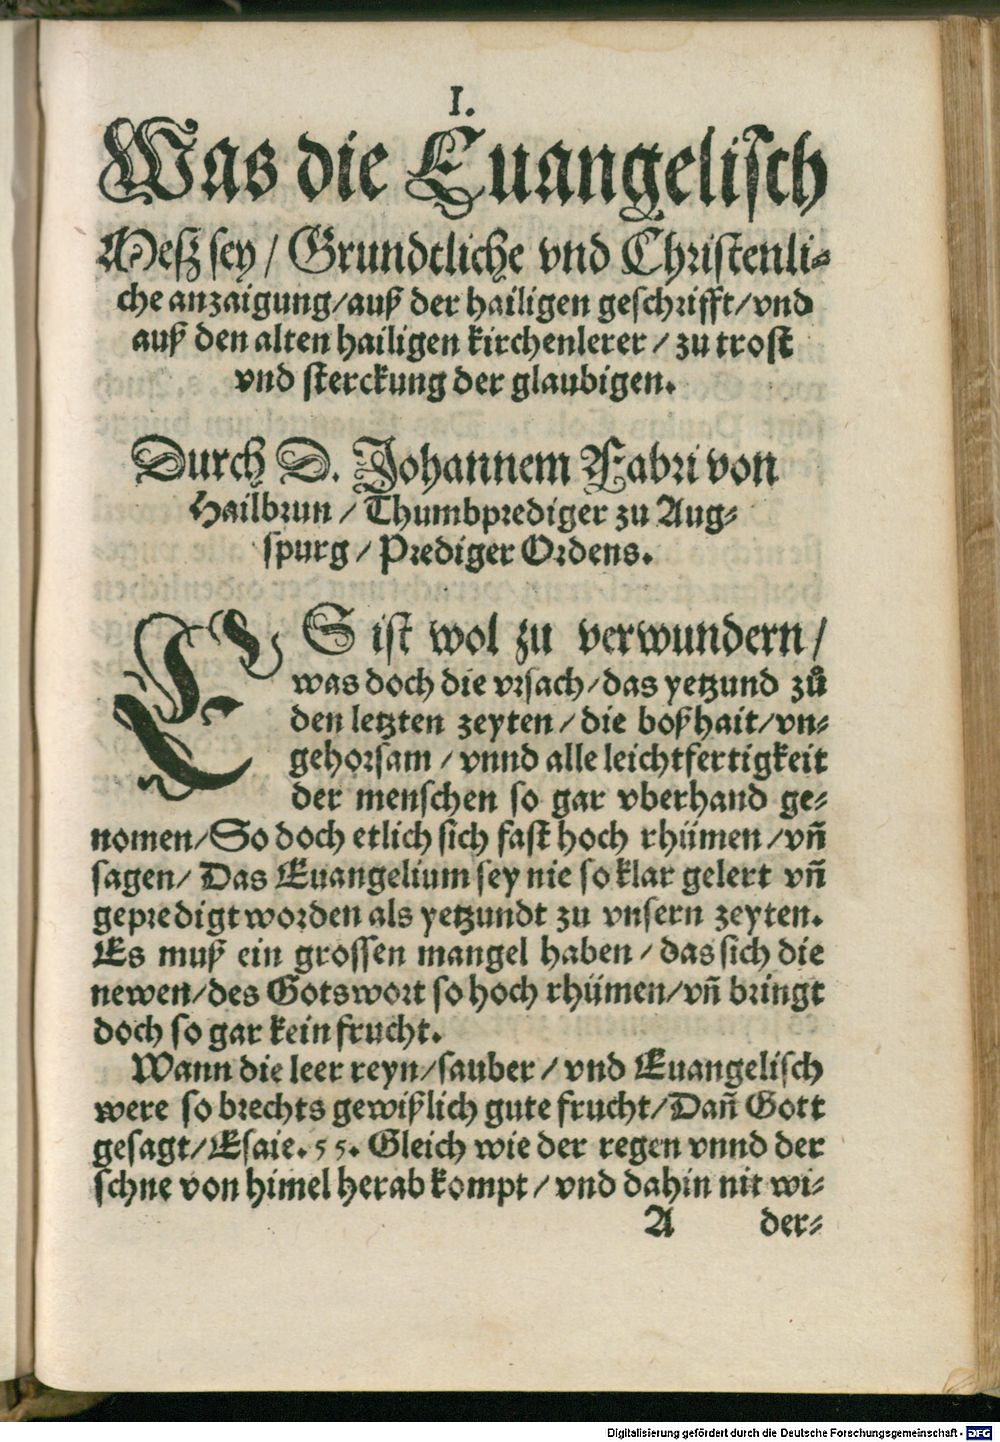 I.
Was die Euangelisch
Meß sey / Grundtliche vnd Christenli⸗
che anzaigung/auß der hailigen geschrifft/vnd
auß den alten hailigen kirchenlerer / zu trost
vnd sterckung der glaubigen.
Durch D. Johannem Fabri von
Hailbrun / Thumbprediger zu Aug⸗
spurg / Prediger Ordens.
ES ist wol zu verwundern /
was doch die vrsach/das yetzund zů
den letzten zeyten / die boßhait/vn⸗
gehorsam / vnnd alle leichtfertigkeit
der menschen so gar vberhand ge⸗
nomen/So doch etlich sich fast hoch rhümen /vñ
sagen/ Das Euangelium sey nie so klar gelert vñ
gepredigt worden als yetzundt zu vnsern zeyten.
Es muß ein grossen mangel haben / das sich die
newen/des Gotswort so hoch rhümen/vñ bringt
doch so gar kein frucht.
Wann die leer reyn/sauber / vnd Euangelisch
were so brechts gewißlich gute frucht/Dañ Gott
gesagt/Esaie. 55. Gleich wie der regen vnnd der
schne von himel herab kompt / vnd dahin nit wi⸗
A der⸗
Digitalisierung gefördert durch die Deutsche Forschungsgemeinschaft - DFG